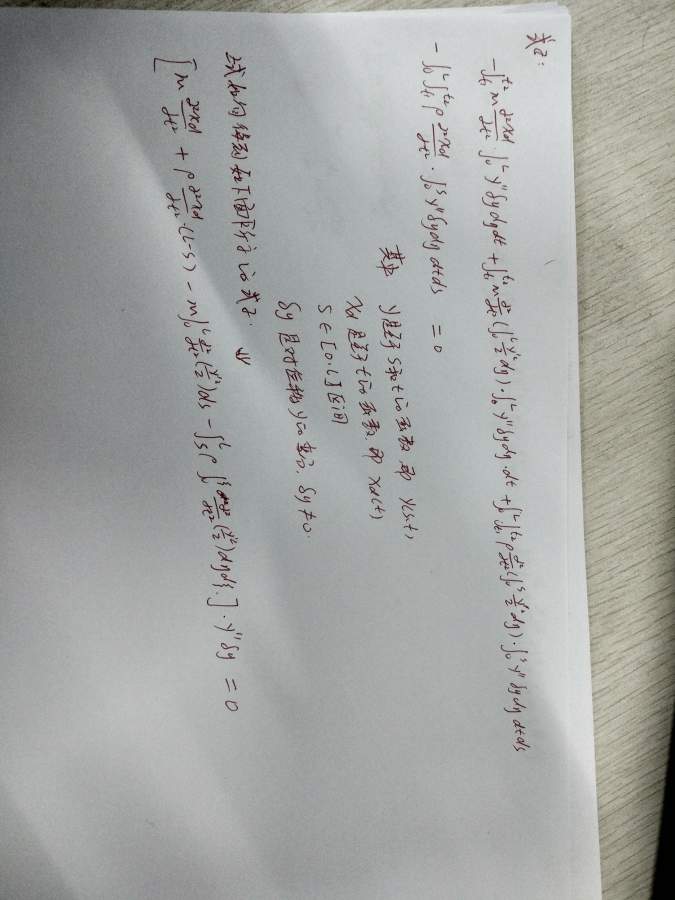 式子:
-∫_{t1}^{t2} m ∂²xd/∂t² · ∫_0^L y'' δy dη dt + ∫_{t1}^{t2} m d²/dt² (∫_0^L y'²/2 dη) · ∫_0^L y'' δy dη · dt + ∫_0^L ∫_{t1}^{t2} ρ d²/dt² (∫_0^s y'²/2 dη) · ∫_0^s y'' δy dη dt ds
- ∫_0^L ∫_{t1}^{t2} ρ ∂²xd/∂t² · ∫_0^s y'' δy dη dt ds = 0
其中 y是关于s和t的函数 即 y(s,t)
xd 是关于t的函数 即 xd(t)
s ∈ [0,L] 区间
δy 是对位移y的变分. δy ≠ 0.
试如何得到如下面所示的式子. ↓
[ m ∂²xd/∂t² + ρ ∂²xd/∂t² · (L-s) - m∫_0^L d²/dt² (y'²/2) ds - ∫_s^L ρ ∫_0^s ∂²/∂t² (y'²/2) dη ds. ] · y'' δy = 0